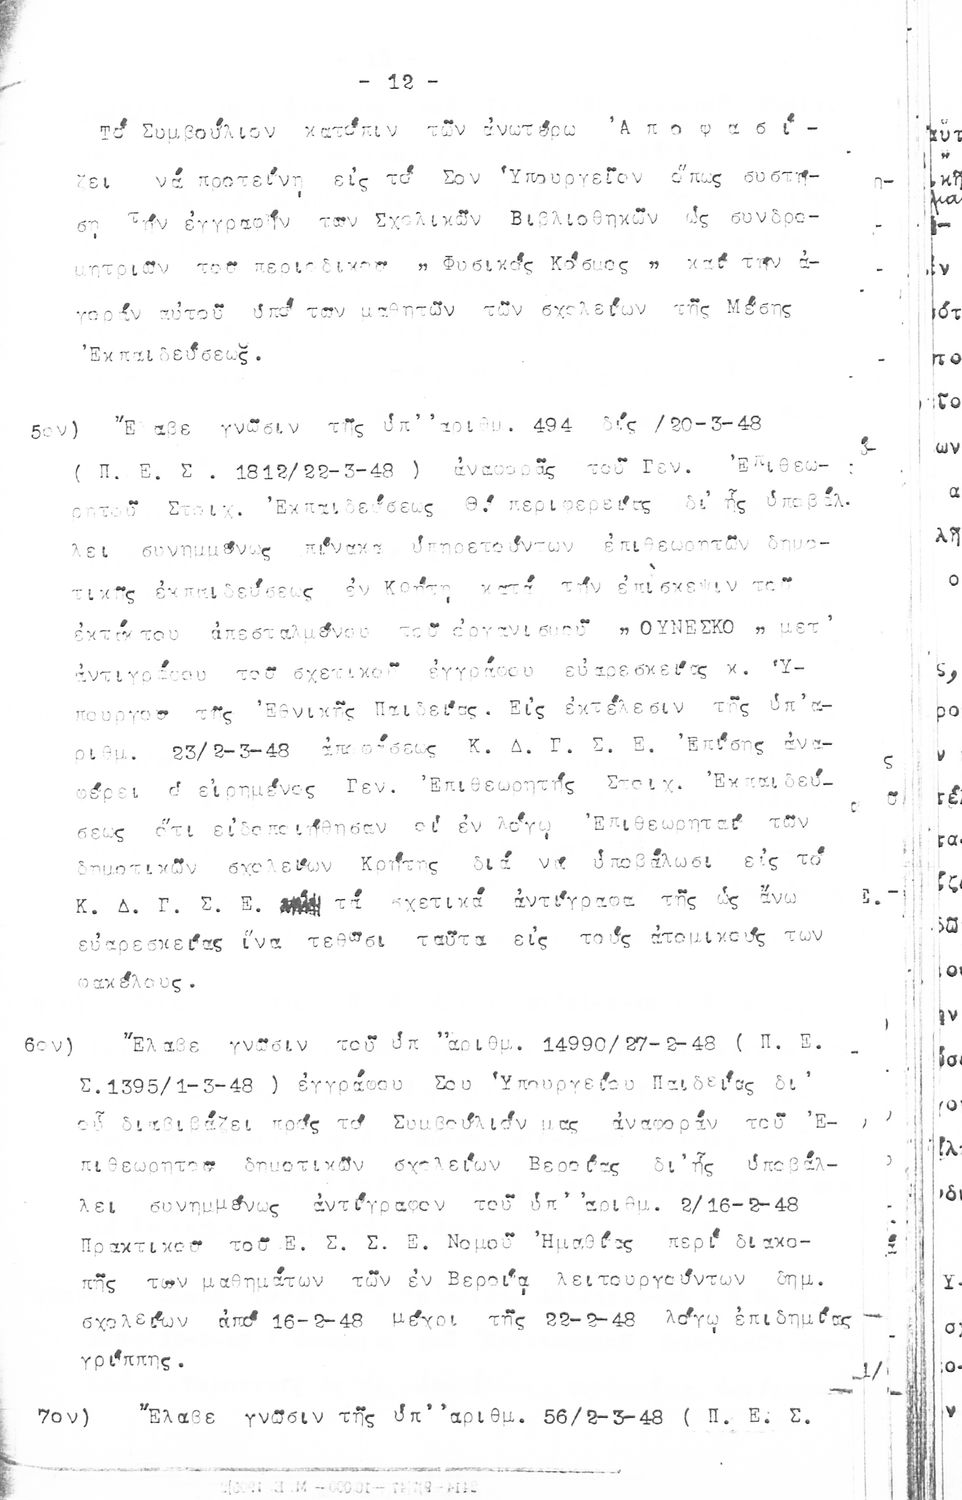 - 12 -
Τό Συμβούλιον κατόπιν τῶν ἀνωτέρω Ἀ π ο φ α σ ί -
ζει νά προτείνῃ εἰς τό Σον Ὑπουργεῖον ὅπως συστή-
σῃ τήν ἐγγραφήν των Σχολικῶν Βιβλιοθηκῶν ὡς συνδρο-
μητριῶν του περιοδικου „ Φυσικός Κόσμος „ καί την ἀ-
γοράν αὐτοῦ ὑπό των μαθητῶν τῶν σχολείων τῆς Μέσης
Ἐκπαιδεύσεως.
5ον) Ἔλαβε γνῶσιν τῆς ὑπ' ἀριθμ. 494 δίς /20-3-48
( Π. Ε. Σ . 1812/22-3-48 ) ἀναφορᾶς τοῦ Γεν. Ἐπιθεω-
ρητοῦ Στοιχ. Ἐκπαιδεύσεως Θ! περιφερείας δι' ἧς ὑποβάλ-
λει συνημμένως πίνακα ὑπηρετούντων ἐπιθεωρητῶν δημο-
τικῆς ἐκπαιδεύσεως ἐν Κρήτῃ κατά τήν ἐπίσκεψιν τοῦ
ἐκτάκτου ἀπεσταλμένου τοῦ ὀργανισμοῦ „ ΟΥΝΕΣΚΟ „ μετ'
ἀντιγράφου τοῦ σχετικοῦ ἐγγράφου εὐαρεσκείας κ. Ὑ-
πουργου τῆς Ἐθνικῆς Παιδείας. Εἰς ἐκτέλεσιν τῆς ὑπ'α-
ριθμ. 23/2-3-48 ἀποφάσεως Κ. Δ. Γ. Σ. Ε. Ἐπίσης ἀνα-
φέρει ὁ εἰρημένος Γεν. Ἐπιθεωρητής Στοιχ. Ἐκπαιδεύ-
σεως ὅτι εἰδοποιήθησαν οἱ ἐν λόγῳ Ἐπιθεωρηταί τῶν
δημοτικῶν σχολείων Κρήτης διά να ὑποβάλωσι εἰς τό
Κ. Δ. Γ. Σ. Ε. τά σχετικά ἀντίγραφα τῆς ὡς ἄνω
εὐαρεσκείας ἵνα τεθῶσι ταῦτα εἰς τούς ἀτομικούς των
φακέλους.
6ον) Ἔλαβε γνῶσιν τοῦ ὑπ ἀριθμ. 14990/27-2-48 ( Π. Ε.
Σ.1395/1-3-48 ) ἐγγράφου Σου Ὑπουργείου Παιδείας δι'
οὗ διαβιβάζει πρός τό Συμβούλιόν μας ἀναφοράν τοῦ Ἐ-
πιθεωρητου δημοτικῶν σχολείων Βεροίας δι'ἧς ὑποβάλ-
λει συνημμένως ἀντίγραφον τοῦ ὑπ' ἀριθμ. 2/16-2-48
Πρακτικου τοῦ Ε. Σ. Σ. Ε. Νομοῦ Ἠμαθίας περί διακο-
πῆς των μαθημάτων τῶν ἐν Βεροίᾳ λειτουργούντων δημ.
σχολείων ἀπό 16-2-48 μέχρι τῆς 22-2-48 λόγῳ ἐπιδημίας
γρίππης.
7ον) Ἔλαβε γνῶσιν τῆς ὑπ' ἀριθμ. 56/2-3-48 ( Π. Ε. Σ.